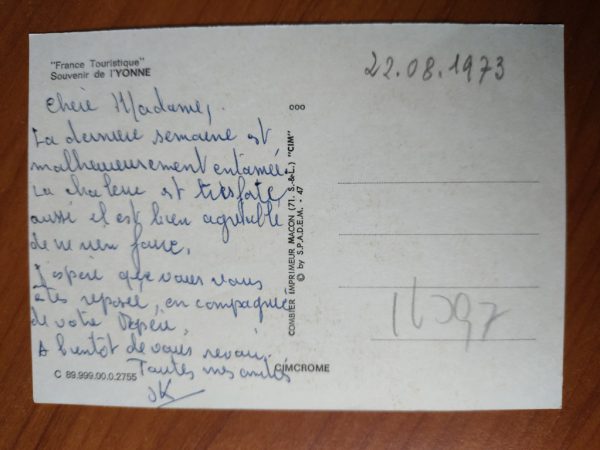 "France Touristique"
Souvenir de l'YONNE
22.08.1973
Chère Madame,
La dernière semaine est
malheureusement entamée.
La chaleur est très forte,
aussi il est bien agréable
de ne rien faire.
J'espère que vous vous
êtes reposée, en compagnie
de votre
A bientôt de vous revoir.
Toutes mes amitiés
JK
C 89.999.00.0.2755
ooo
COMBIER IMPRIMEUR MACON (71. S.-&L.) "CIM"
© by S.P.A.D.E.M. - 47
CIMCROME